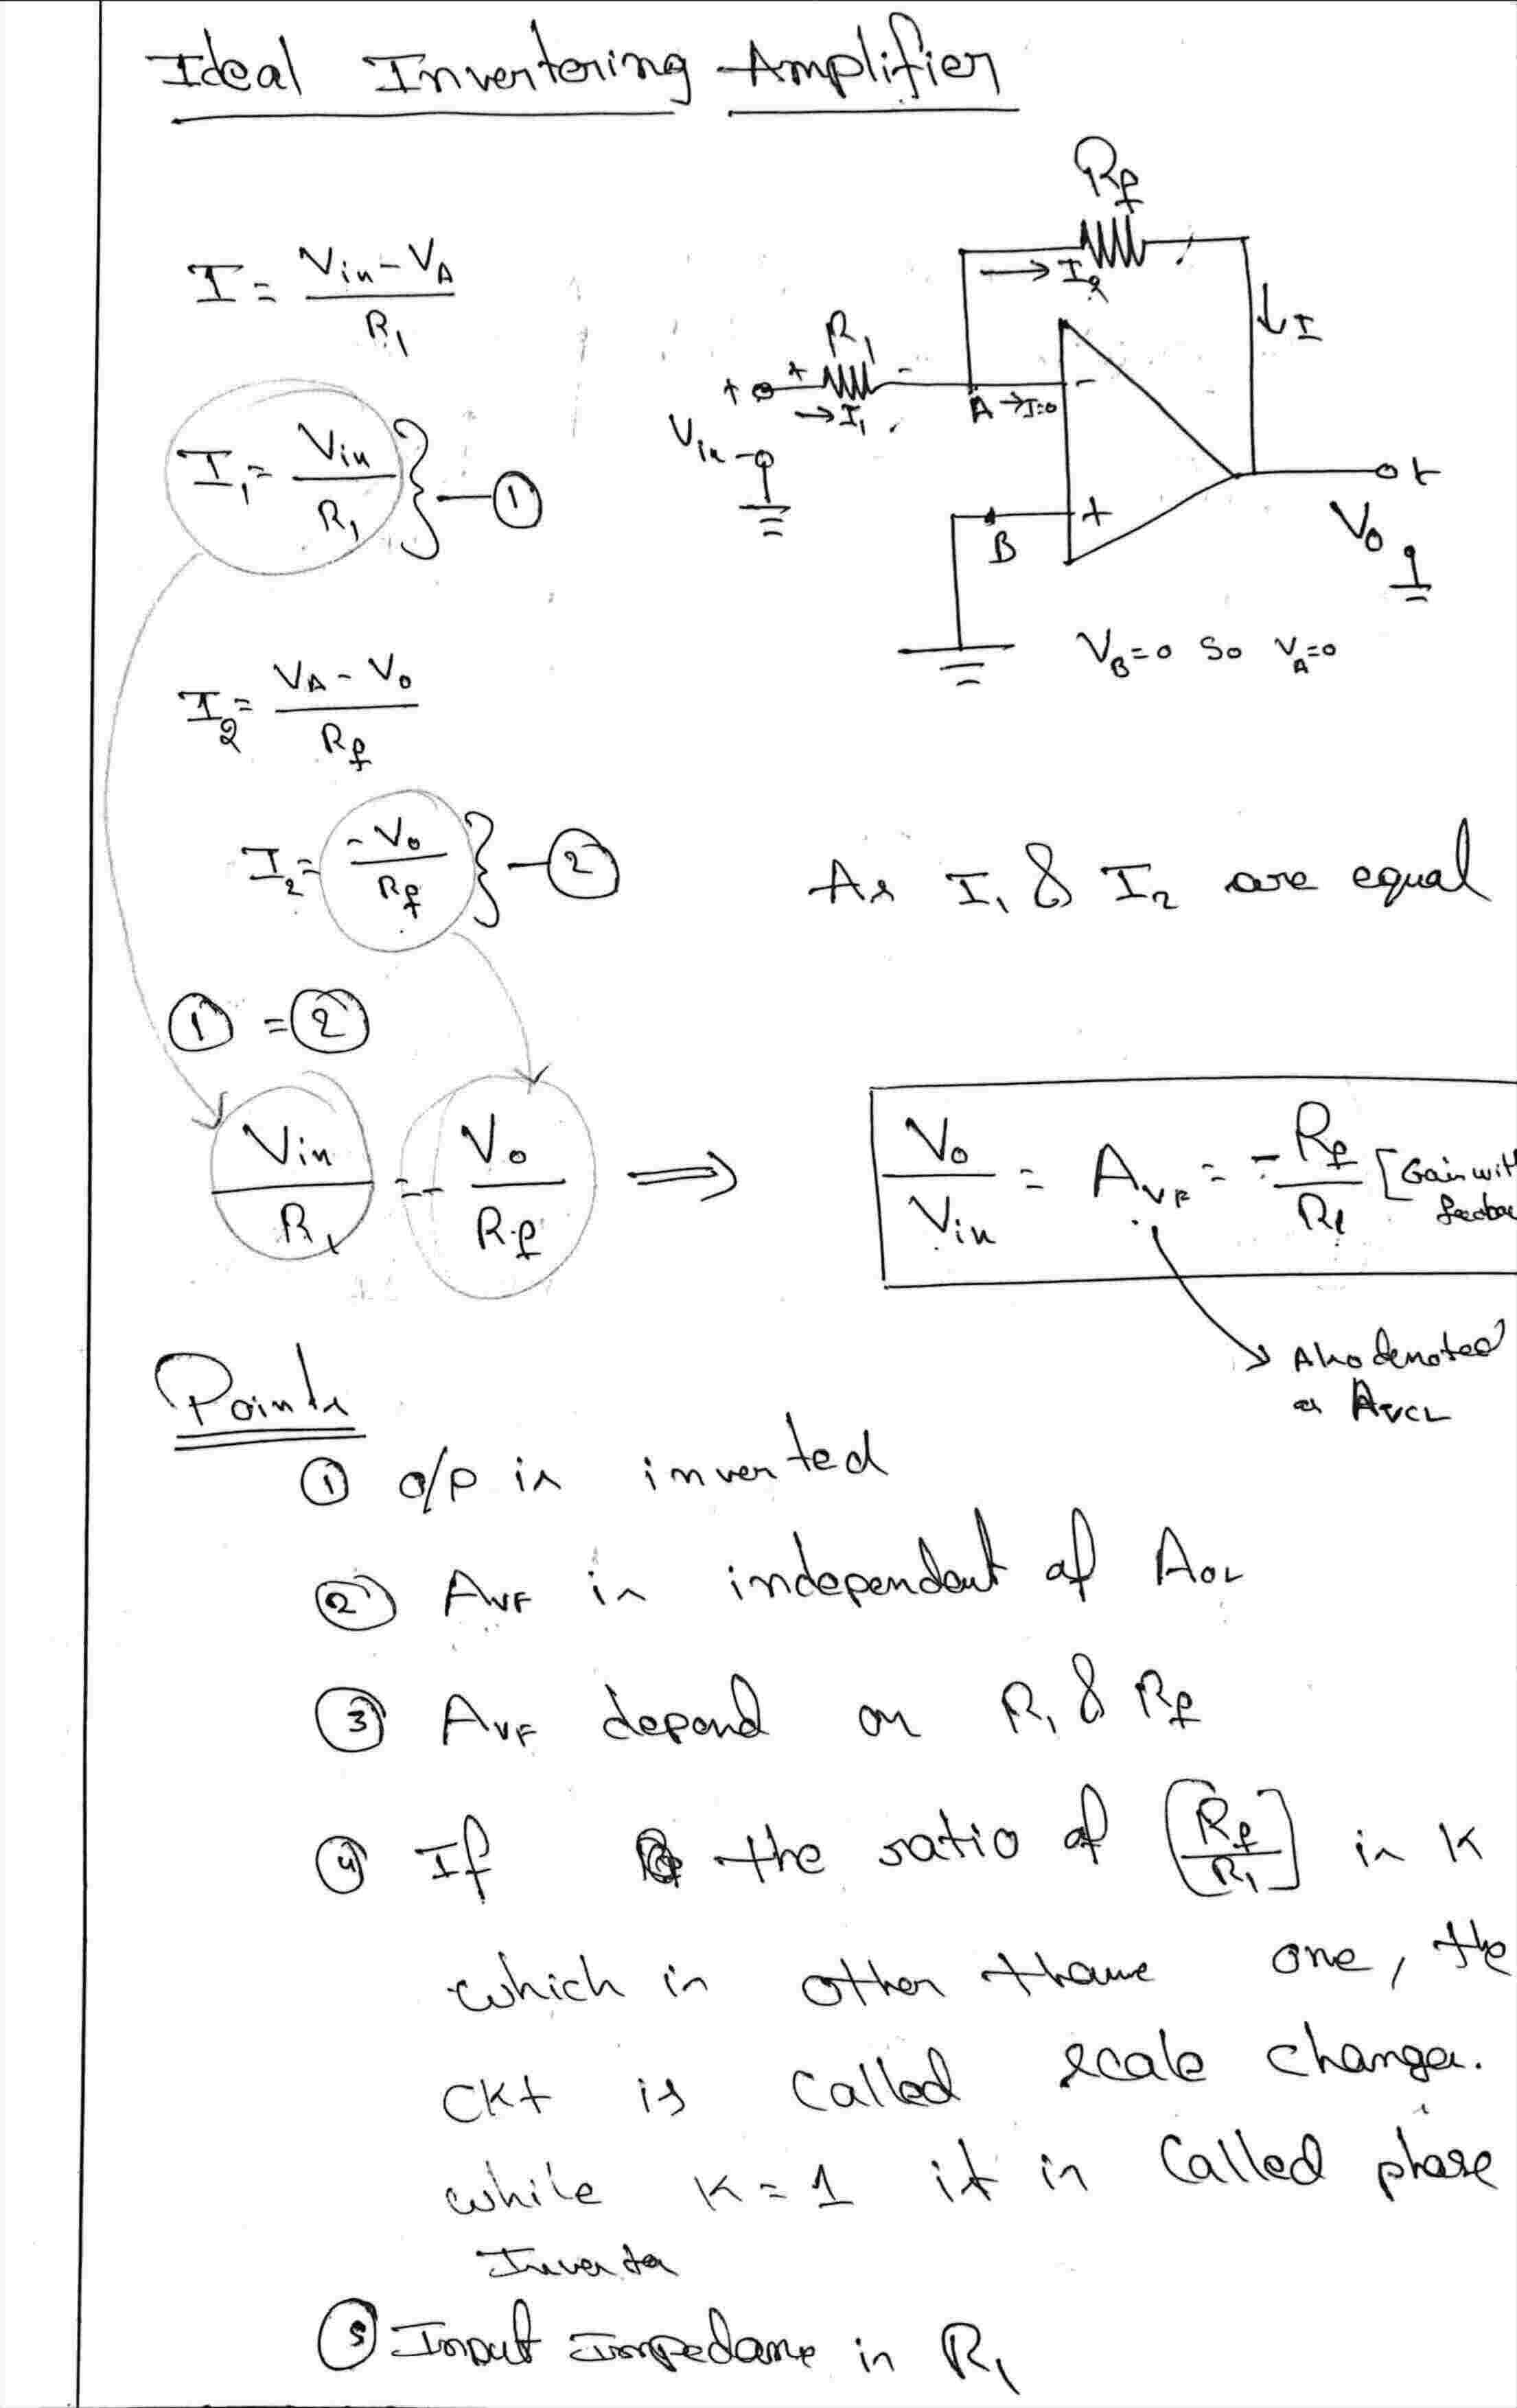 Ideal Invertering Amplifier
Rf
I = Vin - VA / R1
→ I2
↓ I
R1
+ + -
→ I1
A → I=0
-
Vin -
I1 = Vin / R1 } - ①
B
+
+
Vo
VB=0 So VA=0
I2 = VA - Vo / Rf
I2 = -Vo / Rf } - ②
As I1 & I2 are equal
① = ②
Vin / R1 = - Vo / Rf ⟹
Vo / Vin = AVF = - Rf / R1 [Gain wit
feedba
Also denoted
as AVCL
Points
① o/p is inverted
② AVF is independent of AOL
③ AVF depend on R1 & Rf
④ If the ratio of [Rf / R1] is K
which is other thane one, the
CKt is Called scale changer.
while K = 1 it is Called phase
Inverter
⑤ Input Impedance is R1